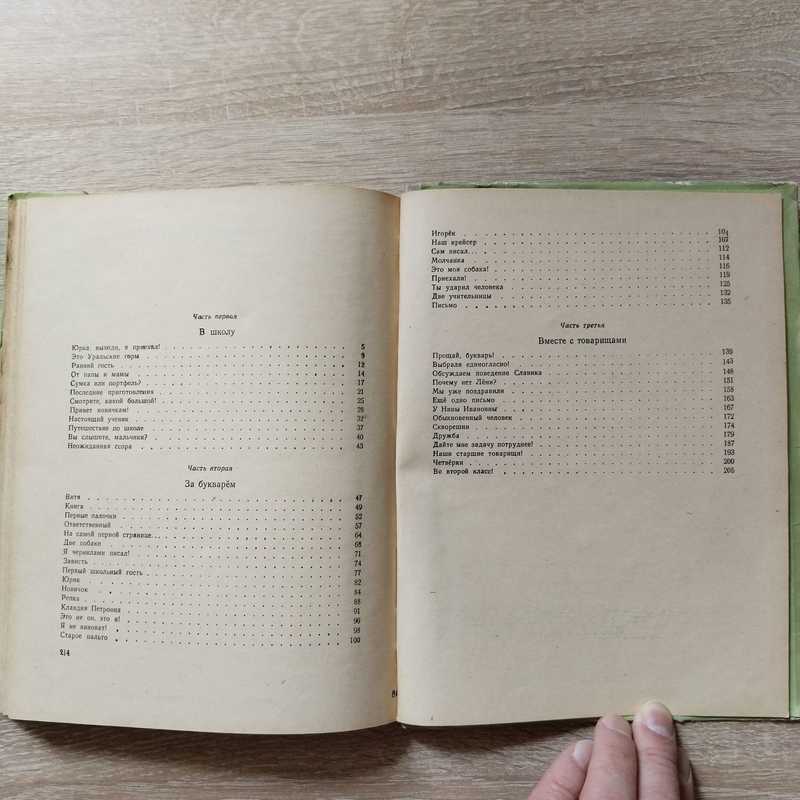 Часть первая
В школу
Юрка, выходи, я приехал! 5
Это Уральские горы 9
Ранний гость 12
От папы и мамы 14
Сумка или портфель? 17
Последние приготовления 21
Смотрите, какой большой! 25
Привет новичкам! 28
Настоящий ученик 32
Путешествие по школе 37
Вы слышите, мальчики? 40
Неожиданная ссора 43
Часть вторая
За букварём
Витя 47
Книга 49
Первые палочки 52
Ответственный 57
На самой первой странице... 64
Две собаки 68
Я чернилами писал! 71
Зависть 74
Первый школьный гость 77
Юрик 82
Новичок 84
Репка 88
Клавдия Петровна 91
Это не он, это я! 96
Я не виноват! 98
Старое пальто 100
214
Игорёк 104
Наш крейсер 107
Сам писал... 112
Молчанка 114
Это моя собака! 116
Приехали! 119
Ты ударил человека 125
Две учительницы 132
Письмо 135
Часть третья
Вместе с товарищами
Прощай, букварь! 139
Выбрали единогласно! 143
Обсуждаем поведение Славика 148
Почему нет Лёни? 151
Мы уже поздравили 158
Ещё одно письмо 163
У Нины Ивановны 167
Обыкновенный человек 172
Скворешни 174
Дружба 179
Дайте мне задачу потруднее! 187
Наши старшие товарищи! 193
Четвёрки 200
Во второй класс! 205